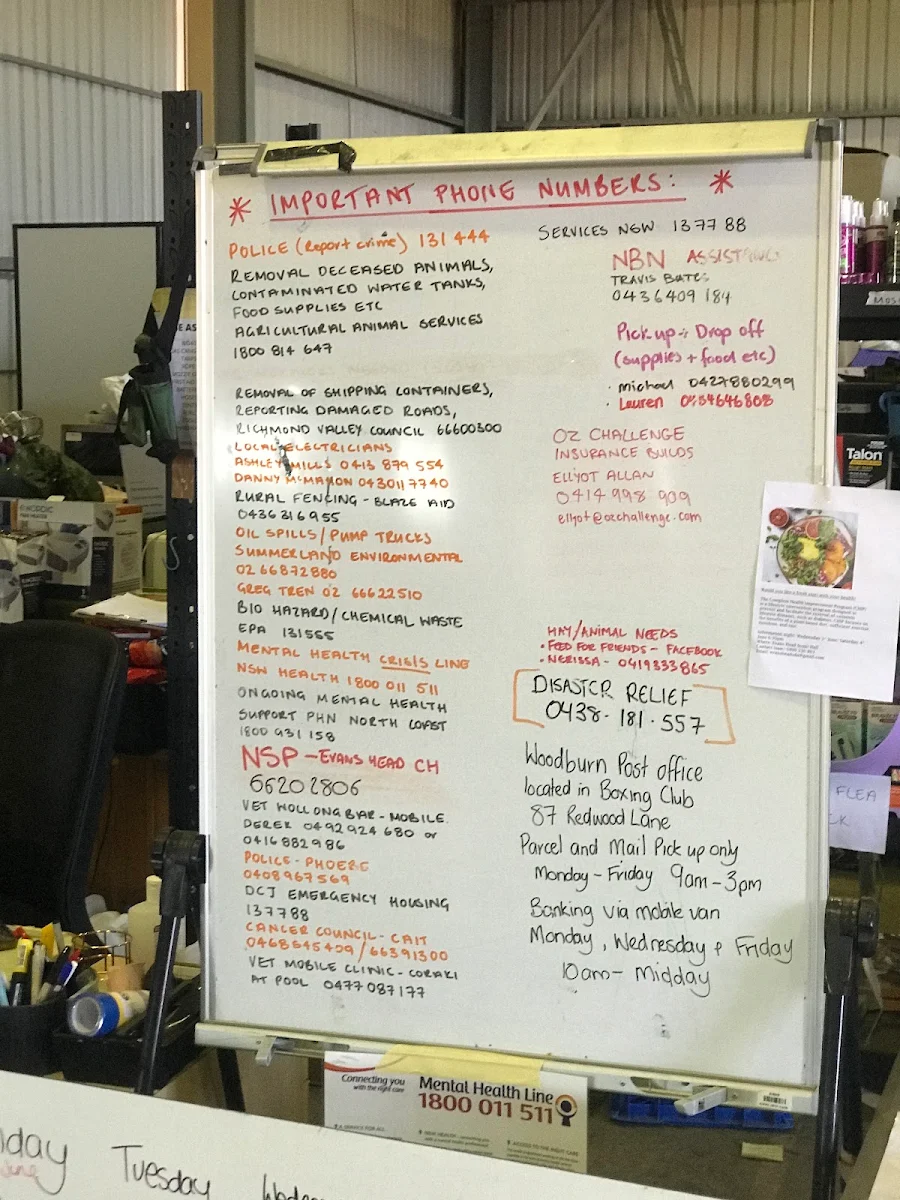 * IMPORTANT PHONE NUMBERS: *
POLICE (Report crime) 131 444
REMOVAL DECEASED ANIMALS,
CONTAMINATED WATER TANKS,
FOOD SUPPLIES ETC
AGRICULTURAL ANIMAL SERVICES
1800 814 647
REMOVAL OF SHIPPING CONTAINERS,
REPORTING DAMAGED ROADS,
RICHMOND VALLEY COUNCIL 66600300
LOCAL ELECTRICIANS
ASHLEY MILLS 0413 879 554
DANNY McMAHON 0430117740
RURAL FENCING - BLAZE AID
0436316955
OIL SPILLS/PUMP TRUCKS
SUMMERLAND ENVIRONMENTAL
02 66872880
GREG TREN 02 66622510
BIO HAZARD/CHEMICAL WASTE
EPA 131555
MENTAL HEALTH CRISIS LINE
NSW HEALTH 1800 011 511
ONGOING MENTAL HEALTH
SUPPORT PHN NORTH COAST
1800 931 158
NSP - EVANS HEAD CH
66202806
VET WOLLONGBAR - MOBILE
DEREK 0492 924 680 or
0416882986
POLICE - PHOEBE
0408967569
DCJ EMERGENCY HOUSING
137788
CANCER COUNCIL - CAIT
0468645409/66391300
VET MOBILE CLINIC - CORAKI
AT POOL 0477 087177
SERVICES NSW 13 77 88
NBN ASSISTANCE
TRAVIS BATES
0436409 184
Pick up + Drop off
(supplies + food etc)
• michael 0427880299
• Lauren
OZ CHALLENGE
INSURANCE BUILDS
ELLYOT ALLAN
0414 998 909
ellyot@ozchallenge.com
HAY/ANIMAL NEEDS
• FEED FOR FRIENDS - FACEBOOK
• NERISSA - 0419333865
DISASTER RELIEF
0438 · 181 · 557
Woodburn Post office
located in Boxing Club
87 Redwood Lane
Parcel and Mail Pick up only
Monday - Friday 9am - 3pm
Banking via mobile van
Monday, Wednesday + Friday
10am - Midday
Talon
FLEA
Connecting you
with the right care
Mental Health Line
1800 011 511
Tuesday